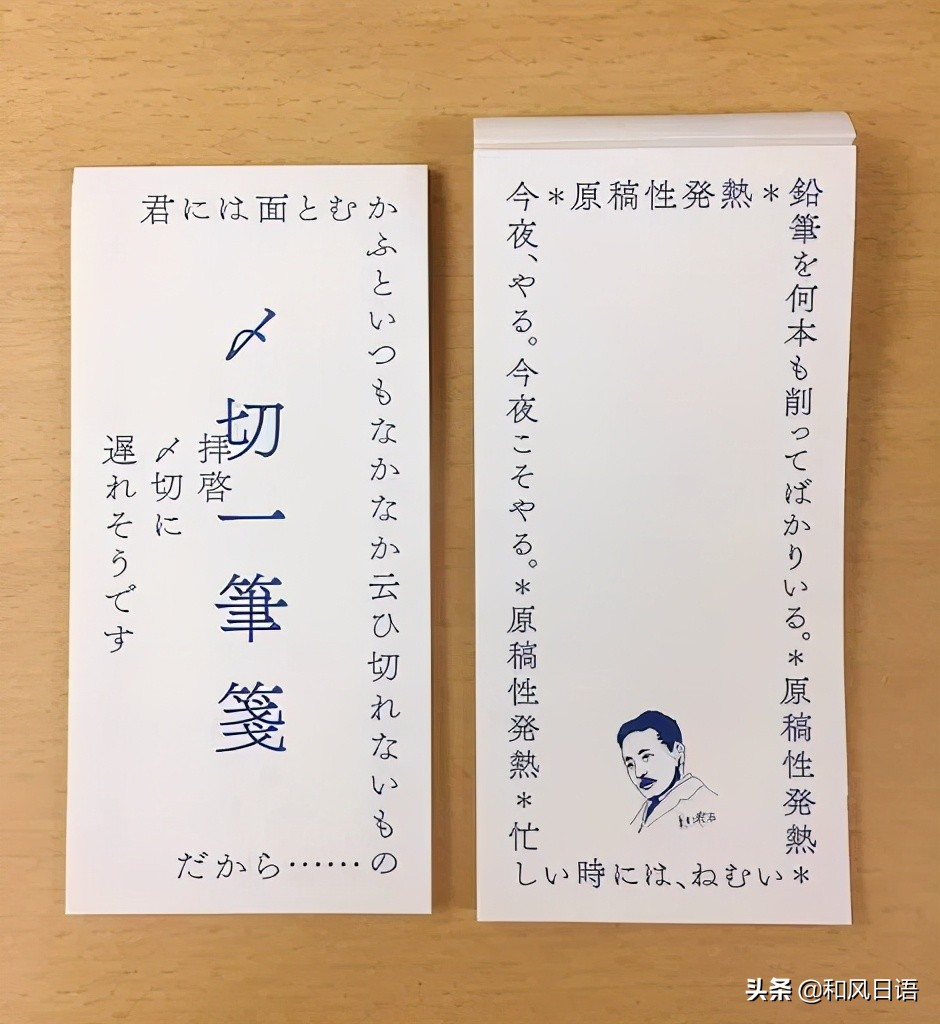 君には面とむか
ふといつもなかなか云ひ切れないもの
だから……
〆切一筆箋
拝啓
〆切に
遅れそうです
＊原稿性発熱＊
鉛筆を何本も削ってばかりいる。＊原稿性発熱
今夜、やる。今夜こそやる。＊原稿性発熱＊忙
しい時には、ねむい＊
头条 @和风日语